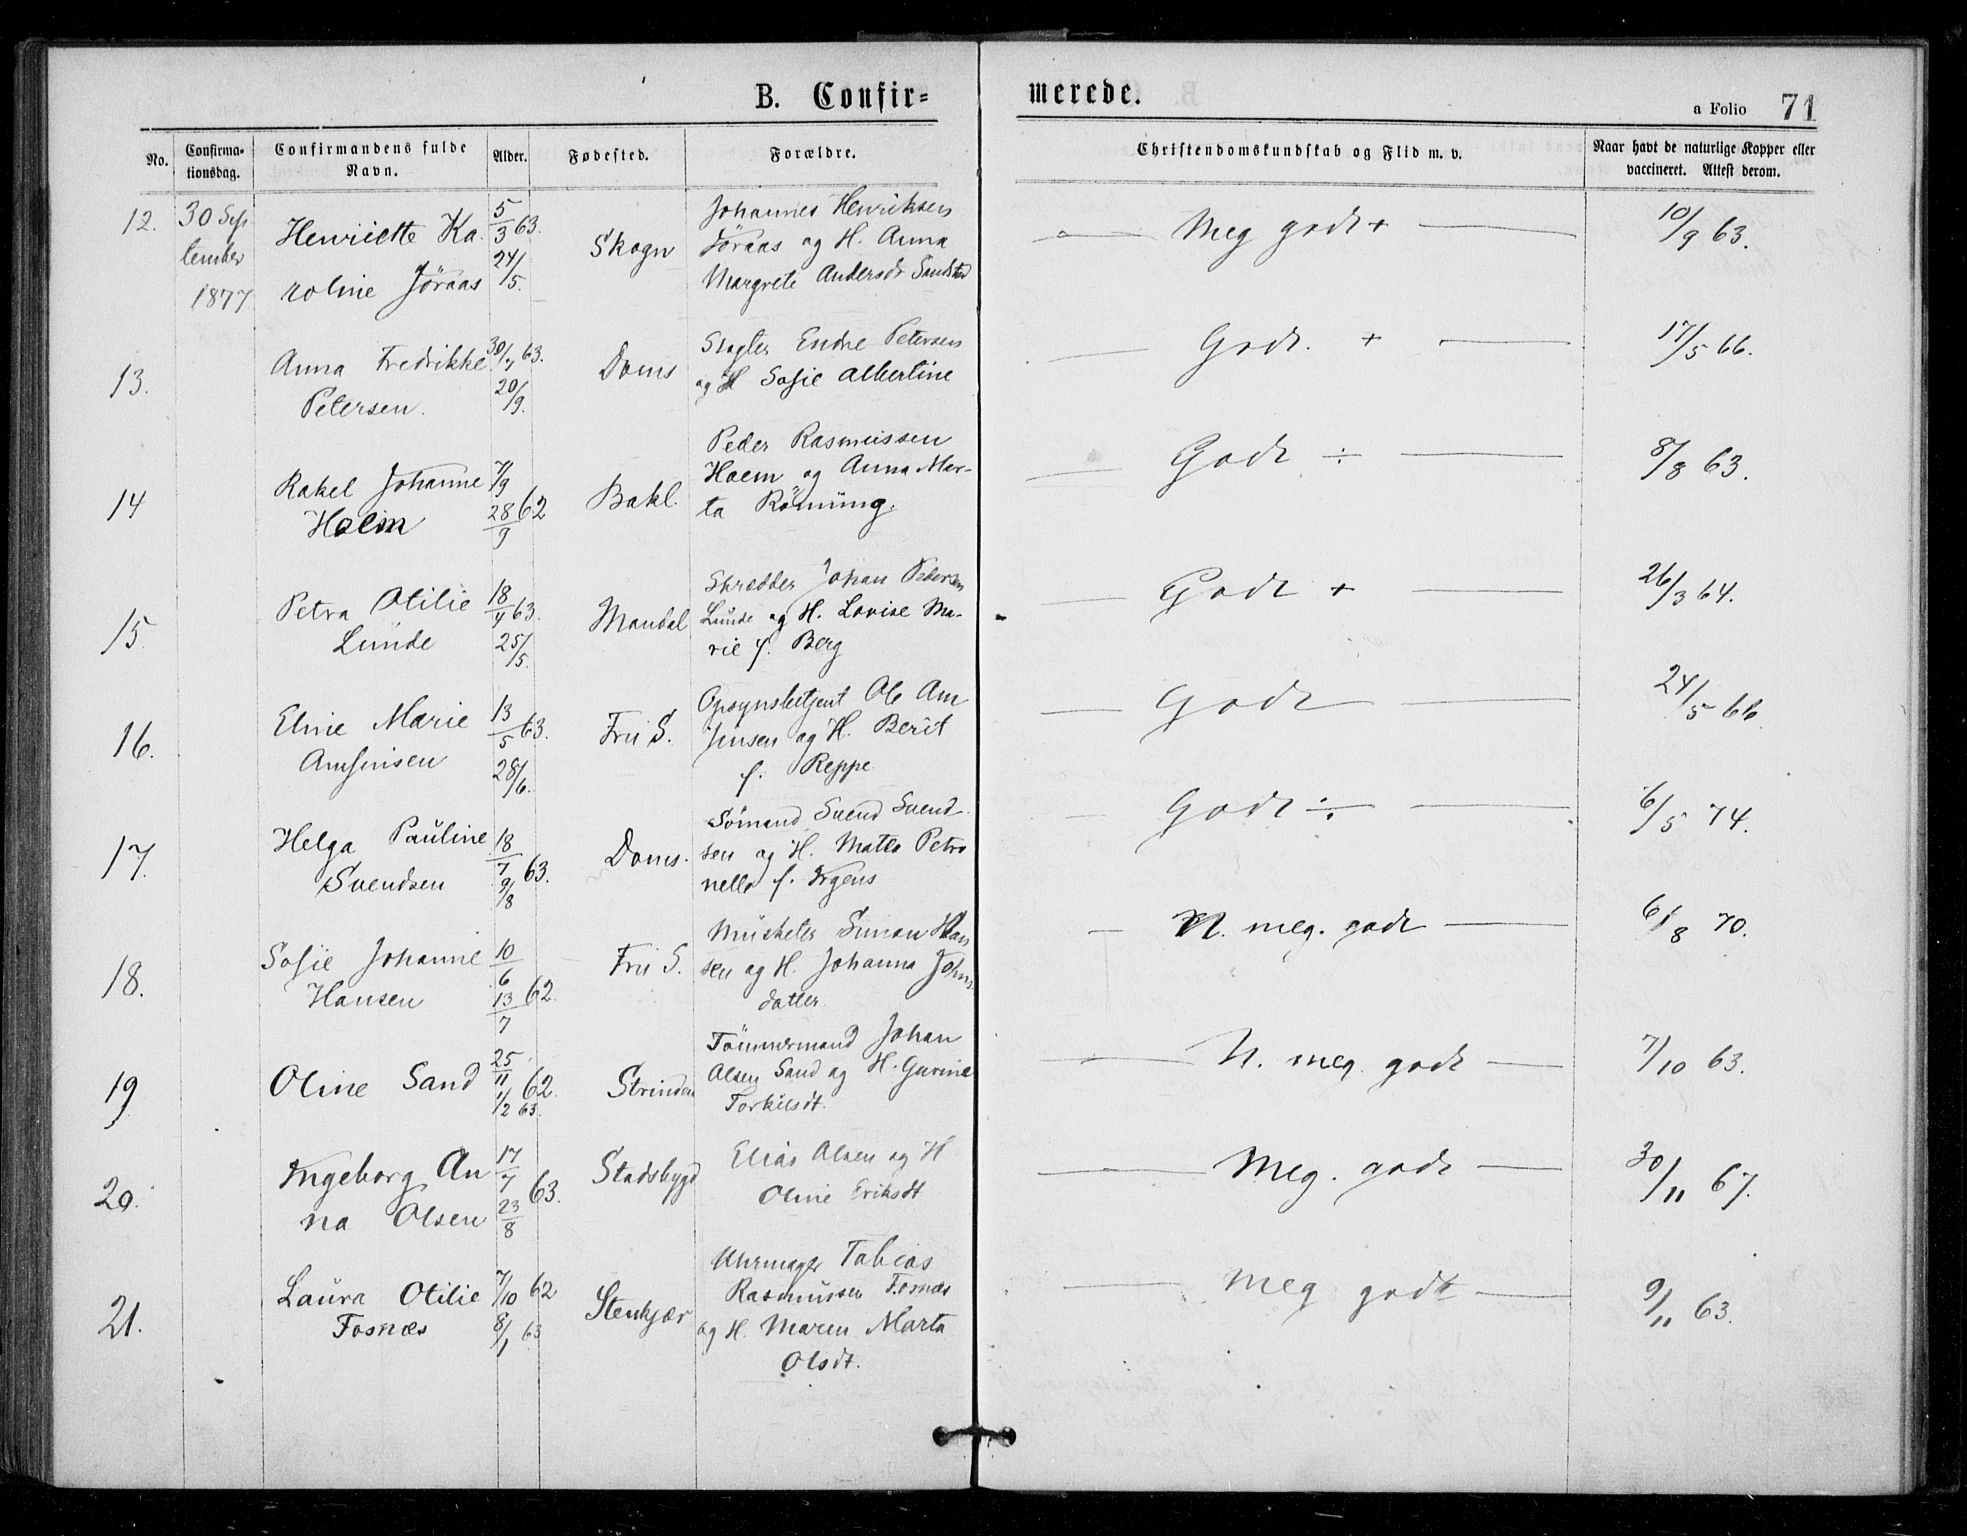 B. Confir=
merede.
a Folio 71
No. Confirma-tionsdag. Confirmandens fulde Navn. Alder. Fødested. Forældre. Christendomskundskab og Flid m. v. Naar havt de naturlige Kopper eller vaccineret. Attest derom.
12. 30 Sep 5/3 63. Johannes Henriksen
tember Henriette Ka Skogn Jöraas og H. Anna Meg godt + 10/9 63.
1877 roline Jöraas 24/5. Margrete Andersdr Sandstad
13. Anna Fredrikke 30/7 63. Doms Slagter Endre Petersen Godt. + 17/5 66.
Petersen. 20/9. og H Sofie Albertine
Peder Rasmussen
14 Rakel Johanne 7/9 Bakl. Holm og Anna Mar- Godt ÷ 8/8 63.
Holm 28/9 62 ta Rönning.
15. Petra Otilie 18/4 63. Mandal Skredder Johan Pedersen Godt + 26/3 64.
Lunde 25/5. Lunde og H. Lovise Ma-
rie f. Berg
16. Eline Marie 13/5 63. Fru S. Opsynsbetjent Ole Am Godt 24/5 66.
Amsinsen 28/6. og H. Berit
f. Reppe
17. Helga Pauline 18/7 63. Doms. Sömand Svend Svend Godt ÷ 6/5 74.
Svendsen 9/8 sen og H. Petro
nella f.
18. Sofie Johanne 10/6 Fru S. Musketer Simon Han N. meg. godt 6/8 70.
Hansen 13/7 62. sen og H. Johanna Johns
datter.
19. Oline Sand 25/11 62. Strinden Tömmermand Johan N. meg. godt 7/10 63.
1/2 63. Olsen Sand og H. Gurine
Torkilsdt.
20. Ingeborg An 17/7 63. Stadsbygd Elias Olsen og H Meg. godt 30/11 67.
na Olsen 23/8 Oline Eriksdt
21. Laura Otilie 7/10 62 Stenkjær Uhrmager Tobias Meg godt 9/11 63.
Fosnæs 8/1 63 Rasmussen Fosnæs
og H. Maren Marta
Olsdt.